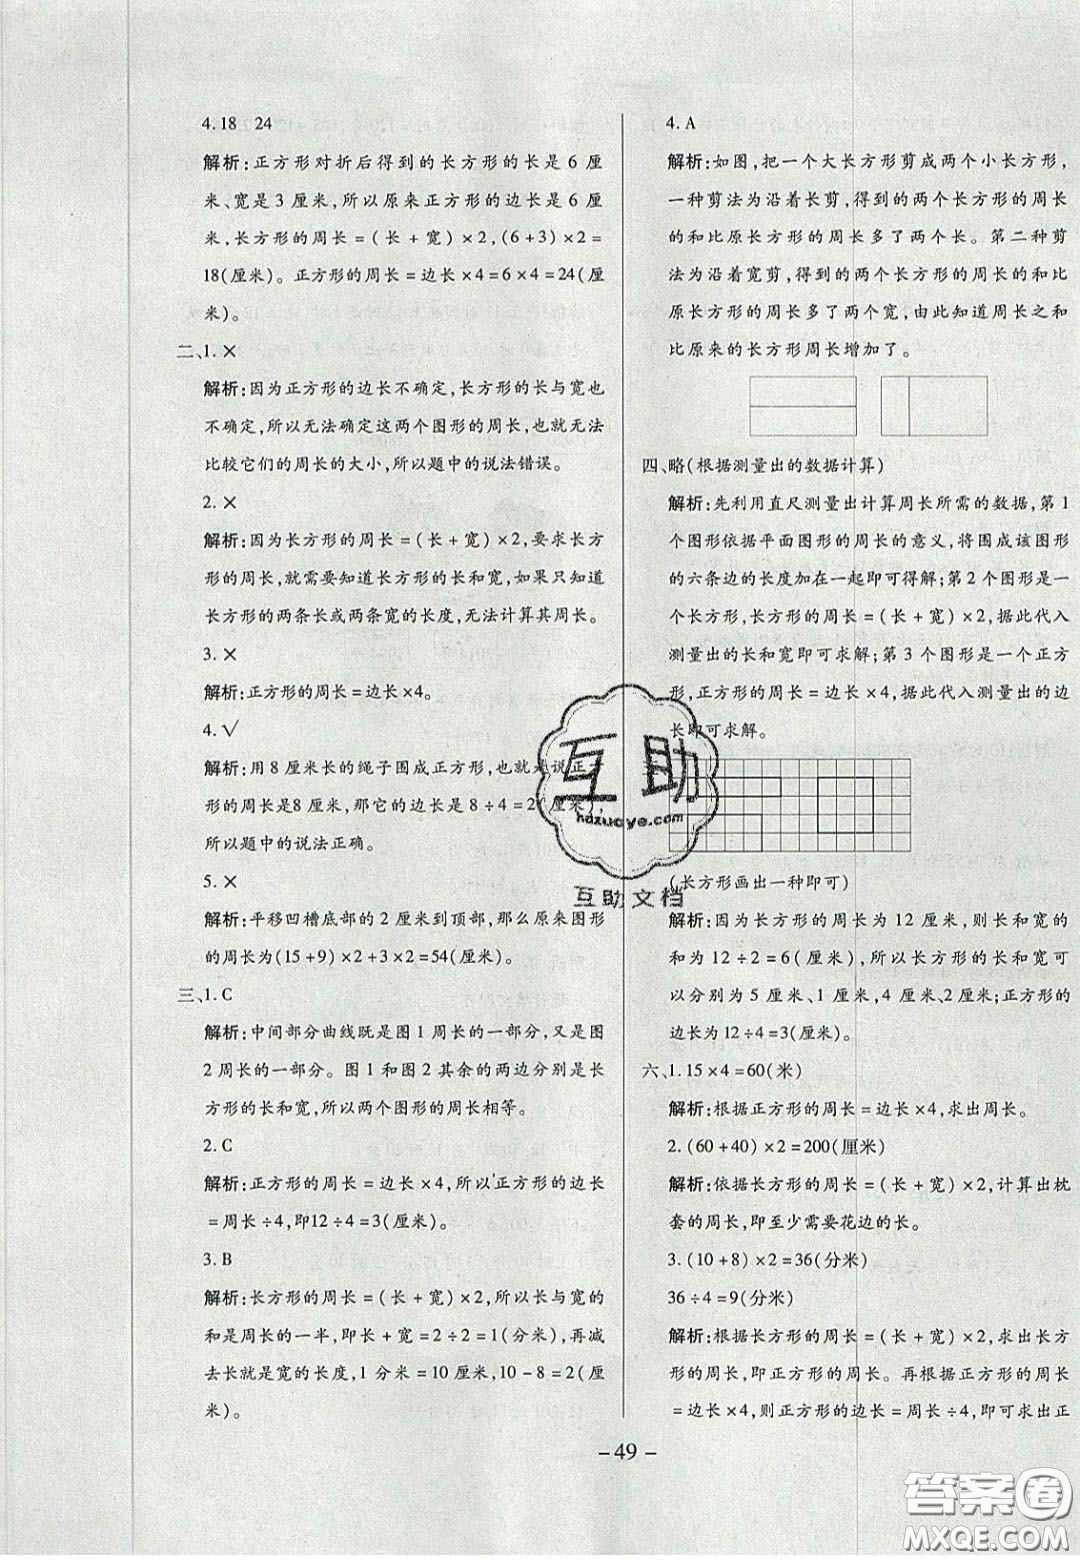 4.18 24
解析:正方形对折后得到的长方形的长是 6 厘
米、宽是 3 厘米,所以原来正方形的边长是 6 厘
米,长方形的周长=(长+宽)×2,(6+3)×2=
18(厘米)。正方形的周长=边长×4=6×4=24(厘
米)。
二、1. ×
解析:因为正方形的边长不确定,长方形的长与宽也
不确定,所以无法确定这两个图形的周长,也就无法
比较它们的周长的大小,所以题中的说法错误。
2. ×
解析:因为长方形的周长=(长+宽)×2,要求长方
形的周长,就需要知道长方形的长和宽,如果只知道
长方形的两条长或两条宽的长度,无法计算其周长。
3. ×
解析:正方形的周长=边长×4。
4. √
解析:用 8 厘米长的绳子围成正方形,也就是说正方
形的周长是8 厘米,那它的边长是 8÷4=2(厘米),
所以题中的说法正确。
5. ×
解析:平移凹槽底部的 2 厘米到顶部,那么原来图形
的周长为(15+9)×2+3×2=54(厘米)。
三、1. C
解析:中间部分曲线既是图 1 周长的一部分,又是图
2 周长的一部分。图 1 和图 2 其余的两边分别是长
方形的长和宽,所以两个图形的周长相等。
2. C
解析:正方形的周长=边长×4,所以正方形的边长
=周长÷4,即12÷4=3(厘米)。
3. B
解析:长方形的周长=(长+宽)×2,所以长与宽的
和是周长的一半,即长+宽=2÷2=1(分米),再减
去长就是宽的长度,1 分米=10 厘米,10-8=2(厘
米)。
4. A
解析:如图,把一个大长方形剪成两个小长方形,
一种剪法为沿着长剪,得到的两个长方形的周长
的和比原长方形的周长多了两个长。第二种剪
法为沿着宽剪,得到的两个长方形的周长的和比
原长方形的周长多了两个宽,由此知道周长之和
比原来的长方形周长增加了。
四、略(根据测量出的数据计算)
解析:先利用直尺测量出计算周长所需的数据,第 1
个图形依据平面图形的周长的意义,将围成该图形
的六条边的长度加在一起即可得解;第 2 个图形是一
个长方形,长方形的周长=(长+宽)×2,据此代入
测量出的长和宽即可求解;第 3 个图形是一个正方
形,正方形的周长=边长×4,据此代入测量出的边
长即可求解。
互助
hdzuoye.com
互助文档
(长方形画出一种即可)
解析:因为长方形的周长为 12 厘米,则长和宽的
和为 12÷2=6(厘米),所以长方形的长和宽可
以分别为 5 厘米、1 厘米,4 厘米、2 厘米;正方形的
边长为 12÷4=3(厘米)。
六、1. 15×4=60(米)
解析:根据正方形的周长=边长×4,求出周长。
2. (60+40)×2=200(厘米)
解析:依据长方形的周长=(长+宽)×2,计算出枕
套的周长,即至少需要花边的长。
3. (10+8)×2=36(分米)
36÷4=9(分米)
解析:根据长方形的周长=(长+宽)×2,求出长方
形的周长,即正方形的周长。再根据正方形的周长
=边长×4,则正方形的边长=周长÷4,即可求出正
- 49 -
答案圈
MXQE.COM